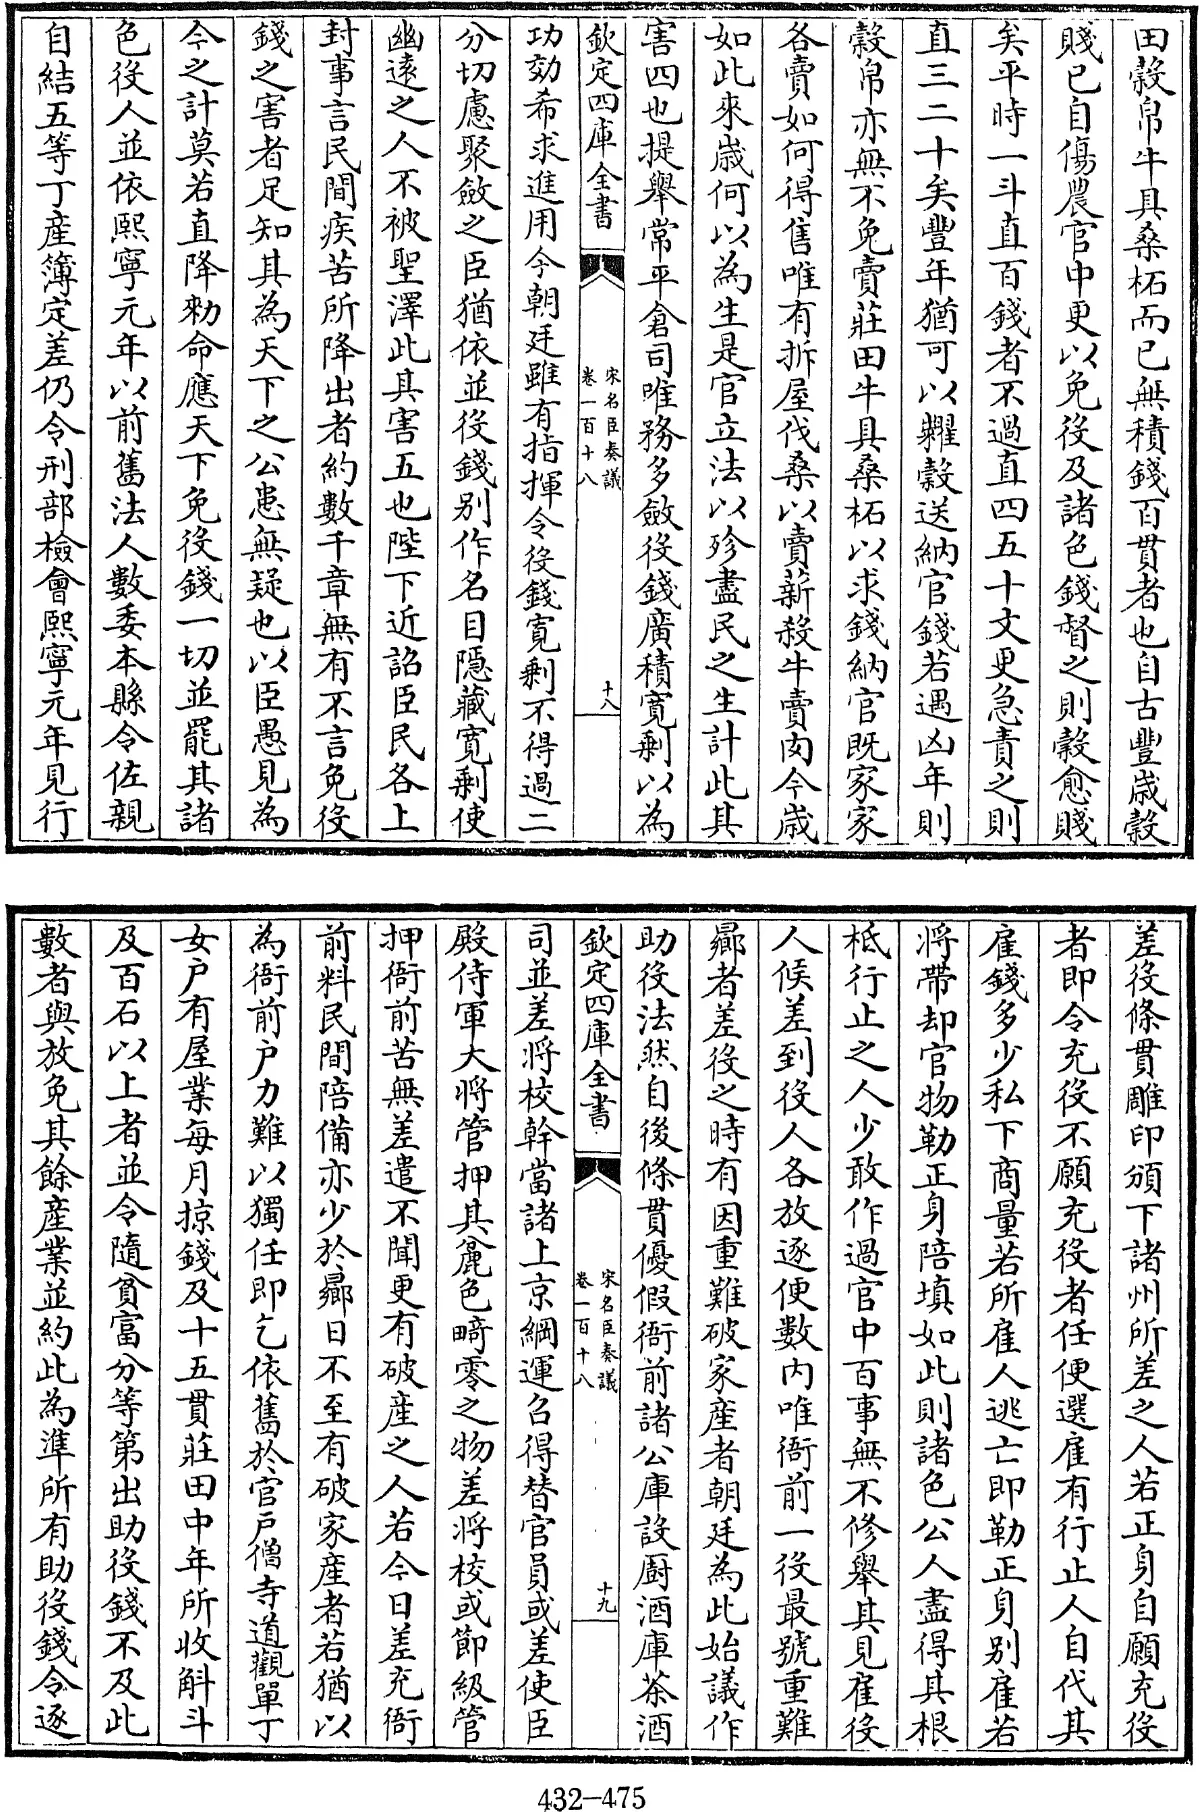 田穀帛牛具桑柘而已無積錢百貫者也自古豐歳穀
賤已自傷農官中更以免役及諸色錢督之則穀愈賤
矣平時一斗直百錢者不過直四五十文更急責之則
直三二十矣豐年猶可以糶穀送納官錢若遇凶年則
穀帛亦無不免賣莊田牛具桑柘以求錢納官既家家
各賣如何得售唯有拆屋伐桑以賣薪殺牛賣肉今歳
如此來歳何以為生是官立法以殄盡民之生計此其
害四也提舉常平倉司唯務多斂役錢廣積寛剰以為
欽定四庫全書
宋名臣奏議
卷一百十八
十八
功効希求進用今朝廷雖有指揮令役錢寛剰不得過二
分切慮聚斂之臣猶依並役錢别作名目隱藏寛剰使
幽遠之人不被聖澤此其害五也陛下近詔臣民各上
封事言民間疾苦所降出者約數千章無有不言免役
錢之害者足知其為天下之公患無疑也以臣愚見為
今之計莫若直降勅命應天下免役錢一切並罷其諸
色役人並依熙寧元年以前舊法人數委本縣令佐親
自結五等丁産簿定差仍令刑部檢會熙寧元年見行
差役條貫雕印頒下諸州所差之人若正身自願充役
者即令充役不願充役者任便選雇有行止人自代其
雇錢多少私下商量若所雇人逃亡即勒正身别雇若
將帶却官物勒正身陪填如此則諸色公人盡得其根
柢行止之人少敢作過官中百事無不修舉其見雇役
人候差到役人各放逐便數内唯衙前一役最號重難
曏者差役之時有因重難破家産者朝廷為此始議作
助役法然自後條貫優假衙前諸公庫設厨酒庫茶酒
欽定四庫全書
宋名臣奏議
卷一百十八
十九
司並差將校幹當諸上京綱運召得替官員或差使臣
殿侍軍大將管押其麄色畸零之物差將校或節級管
押衙前苦無差遣不聞更有破産之人若今日差充衙
前料民間陪備亦少於曏日不至有破家産者若猶以
為衙前户力難以獨任即乞依舊於官戸僧寺道觀單丁
女户有屋業每月掠錢及十五貫莊田中年所收斛斗
及百石以上者並令隨貧富分等第出助役錢不及此
數者與放免其餘産業並約此為準所有助役錢令逐
432-475